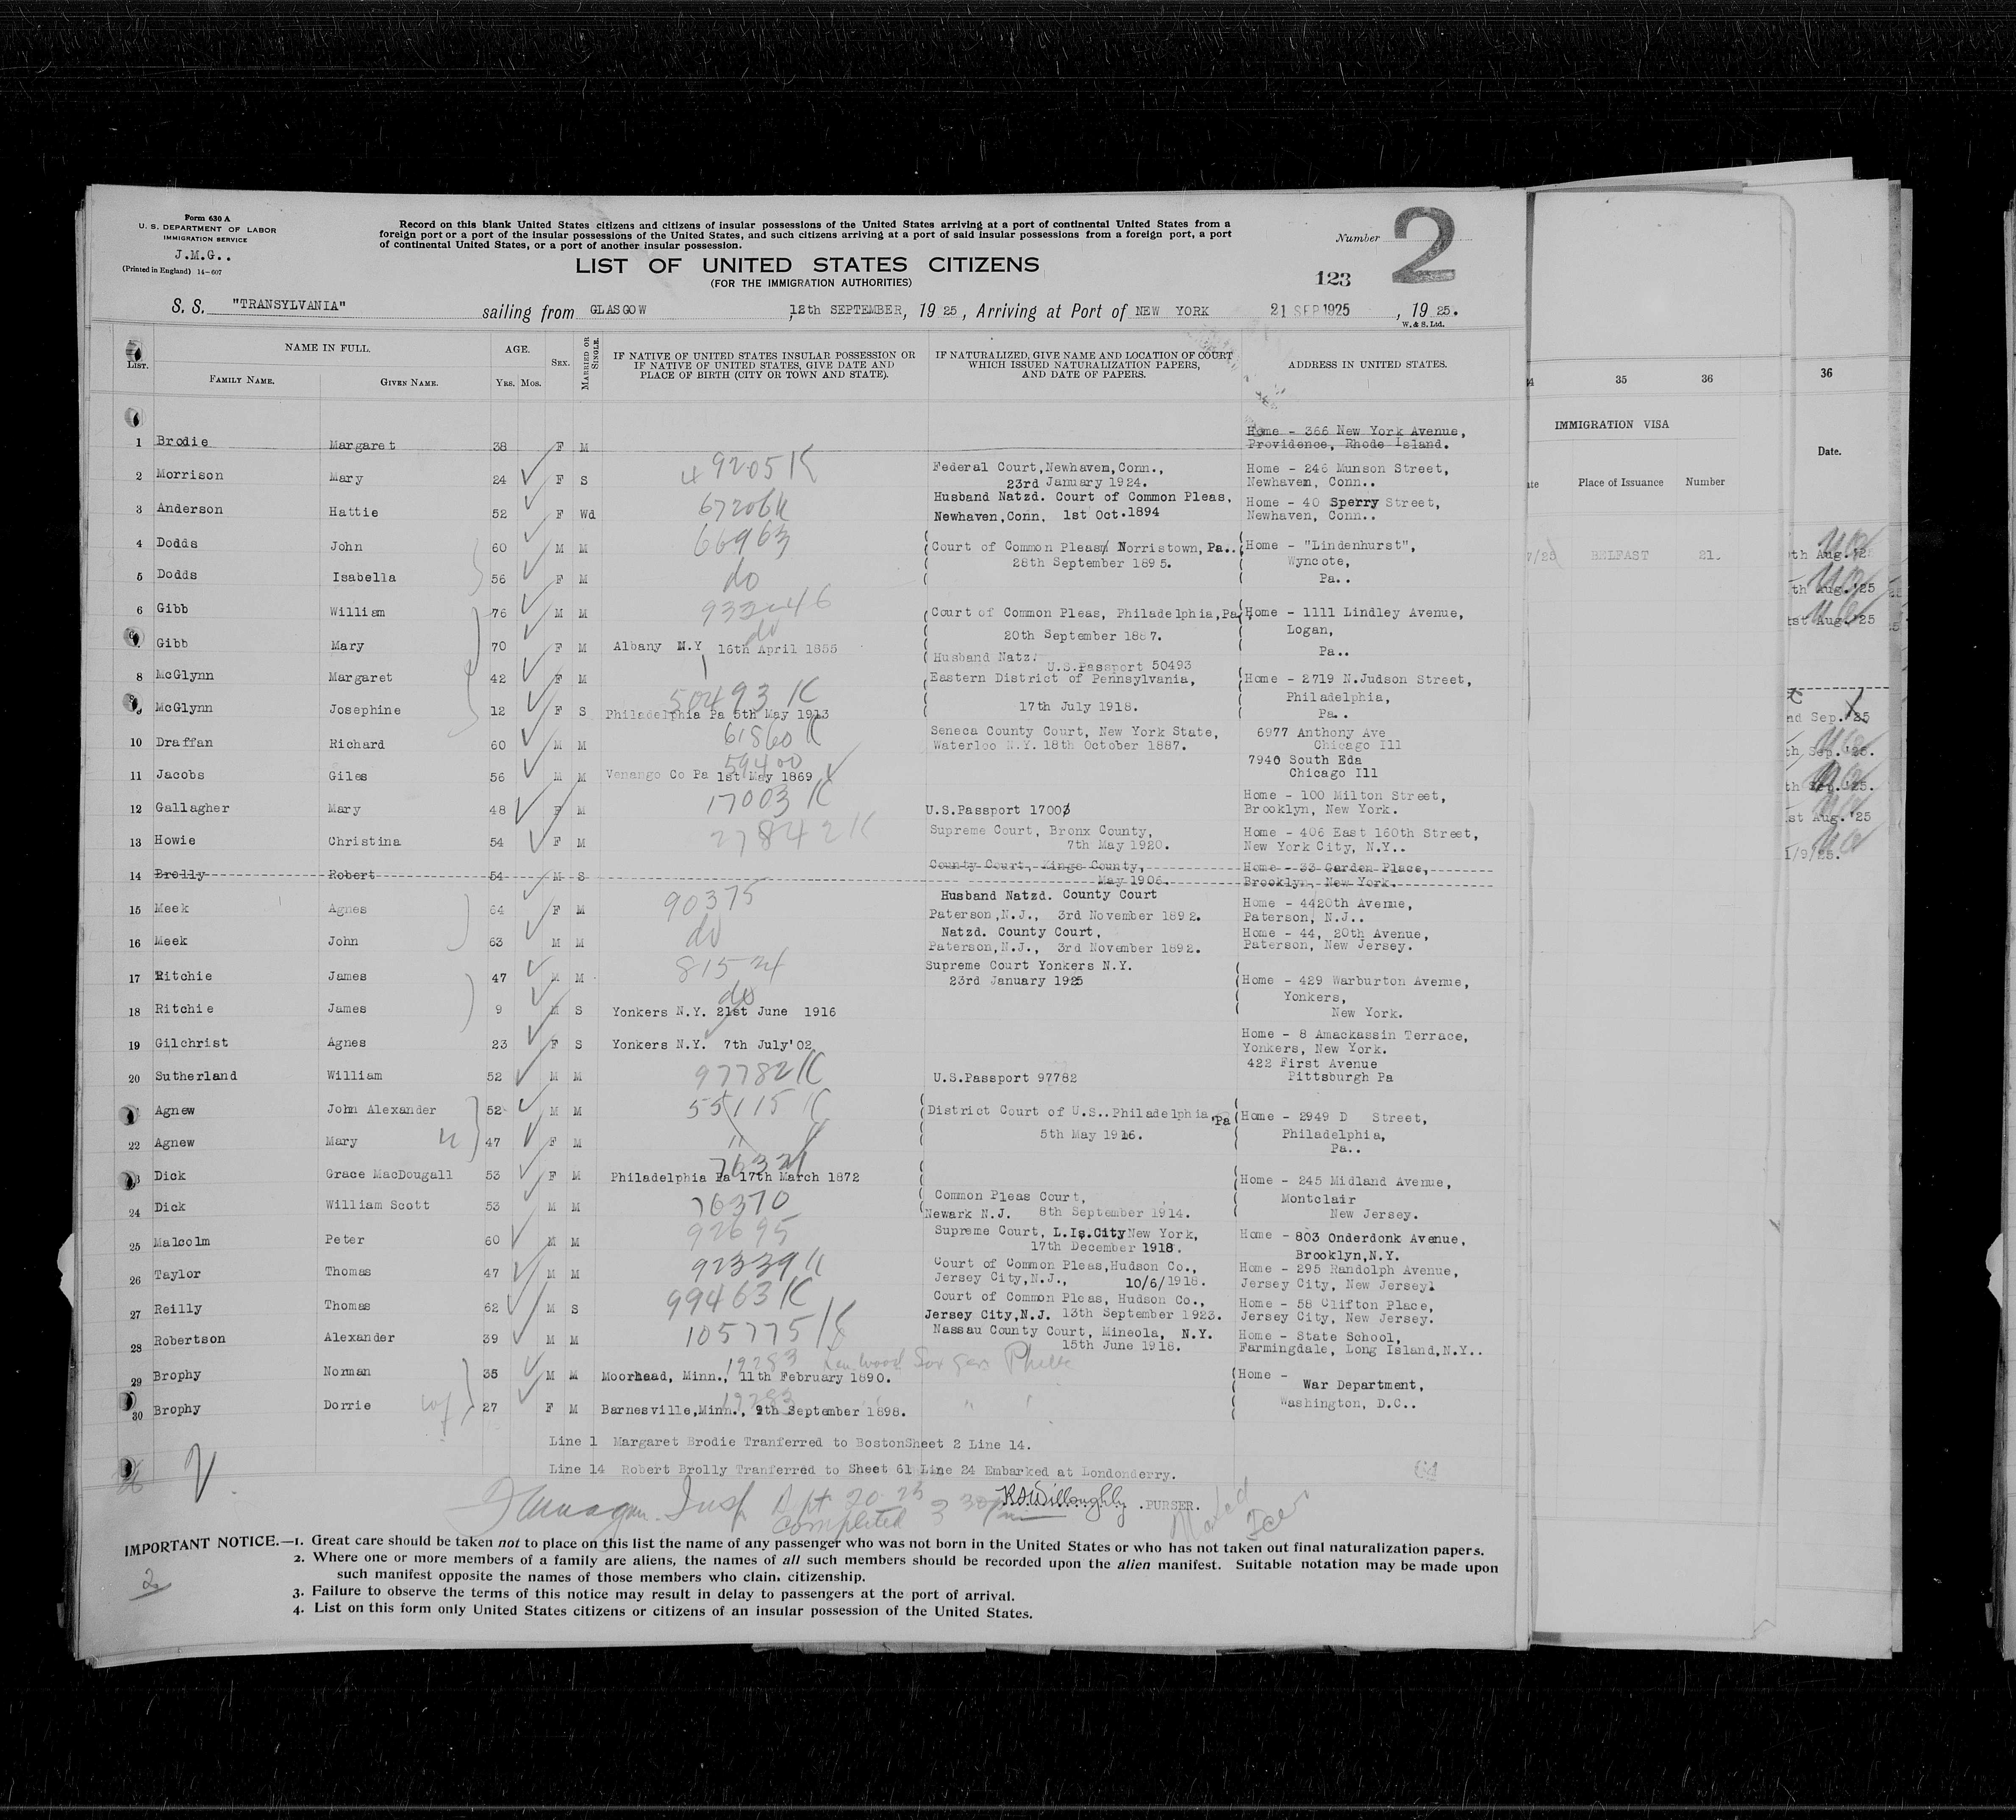 Form 630 A
U. S. DEPARTMENT OF LABOR
IMMIGRATION SERVICE
J.M.G..
(Printed in England) 14-607
Record on this blank United States citizens and citizens of insular possessions of the United States arriving at a port of continental United States from a
foreign port or a port of the insular possessions of the United States, and such citizens arriving at a port of said insular possessions from a foreign port, a port
of continental United States, or a port of another insular possession.
Number 2
123
LIST OF UNITED STATES CITIZENS
(FOR THE IMMIGRATION AUTHORITIES)
S. S. "TRANSYLVANIA" sailing from GLASGOW 12th SEPTEMBER, 1925, Arriving at Port of NEW YORK 21 SEP 1925, 1925.
W. & S. Ltd.
LIST. NAME IN FULL. AGE. SEX. MARRIED OR SINGLE. IF NATIVE OF UNITED STATES INSULAR POSSESSION OR IF NATIVE OF UNITED STATES, GIVE DATE AND PLACE OF BIRTH (CITY OR TOWN AND STATE). IF NATURALIZED, GIVE NAME AND LOCATION OF COURT WHICH ISSUED NATURALIZATION PAPERS, AND DATE OF PAPERS. ADDRESS IN UNITED STATES.
FAMILY NAME. GIVEN NAME. Yrs. Mos.
1 Brodie Margaret 38 F M Home - 366 New York Avenue, Providence, Rhode Island.
2 Morrison Mary 24 F S 49205 K Federal Court, Newhaven, Conn., 23rd January 1924. Home - 246 Munson Street, Newhaven, Conn..
3 Anderson Hattie 52 F Wd 67206 K Husband Natzd. Court of Common Pleas, Newhaven, Conn, 1st Oct. 1894 Home - 40 Sperry Street, Newhaven, Conn..
4 Dodds John 60 M M 66963 Court of Common Pleas, Norristown, Pa.. 28th September 1895. Home - "Lindenhurst", Wyncote, Pa..
5 Dodds Isabella 56 F M do
6 Gibb William 76 M M Court of Common Pleas, Philadelphia, Pa 20th September 1887. Home - 1111 Lindley Avenue, Logan, Pa..
Gibb Mary 70 F M do Albany N.Y 16th April 1855
8 McGlynn Margaret 42 F M Husband Natz. U.S.Passport 50493 Eastern District of Pennsylvania, 17th July 1918. Home - 2719 N.Judson Street, Philadelphia, Pa..
McGlynn Josephine 12 F S 50493 K Philadelphia Pa 5th May 1913
10 Draffan Richard 60 M M 61860 K Seneca County Court, New York State, Waterloo N.Y. 18th October 1887. 6977 Anthony Ave Chicago Ill
11 Jacobs Giles 56 M M 59400 Venango Co Pa 1st May 1869 7940 South Eda Chicago Ill
12 Gallagher Mary 48 F M 17003 K U.S.Passport 17003 Home - 100 Milton Street, Brooklyn, New York.
13 Howie Christina 54 F M 27842 K Supreme Court, Bronx County, 7th May 1920. Home - 406 East 160th Street, New York City, N.Y..
14 Brolly Robert 54 M S County Court, Kings County, May 1906. Home - 33 Garden Place, Brooklyn, New York.
15 Meek Agnes 64 F M 90375 Husband Natzd. County Court Paterson, N.J., 3rd November 1892. Home - 4420th Avenue, Paterson, N.J..
16 Meek John 63 M M do Natzd. County Court, Paterson, N.J., 3rd November 1892. Home - 44, 20th Avenue, Paterson, New Jersey.
17 Ritchie James 47 M M 81524 Supreme Court Yonkers N.Y. 23rd January 1925 Home - 429 Warburton Avenue, Yonkers, New York.
18 Ritchie James 9 M S do Yonkers N.Y. 21st June 1916
19 Gilchrist Agnes 23 F S Yonkers N.Y. 7th July'02 Home - 8 Amackassin Terrace, Yonkers, New York.
20 Sutherland William 52 M M 97782 K U.S.Passport 97782 422 First Avenue Pittsburgh Pa
Agnew John Alexander 52 M M 55115 K District Court of U.S.. Philadelphia, Pa 5th May 1916. Home - 2949 D Street, Philadelphia, Pa..
22 Agnew Mary 47 F M "
Dick Grace MacDougall 53 F M Philadelphia Pa 17th March 1872 Home - 245 Midland Avenue, Montclair New Jersey.
24 Dick William Scott 53 M M 76370 Common Pleas Court, Newark N.J. 8th September 1914.
25 Malcolm Peter 60 M M 92695 Supreme Court, L.Is.City New York, 17th December 1918. Home - 803 Onderdonk Avenue, Brooklyn, N.Y.
26 Taylor Thomas 47 M M 92339 K Court of Common Pleas, Hudson Co., Jersey City, N.J., 10/6/1918. Home - 295 Randolph Avenue, Jersey City, New Jersey.
27 Reilly Thomas 62 M S 99463 K Court of Common Pleas, Hudson Co., Jersey City, N.J. 13th September 1923. Home - 58 Clifton Place, Jersey City, New Jersey.
28 Robertson Alexander 39 M M 105775 K Nassau County Court, Mineola, N.Y. 15th June 1918. Home - State School, Farmingdale, Long Island, N.Y..
29 Brophy Norman 35 M M 19283 Moorhead, Minn., 11th February 1890. Home - War Department, Washington, D.C..
30 Brophy Dorrie wf 27 F M 19283 Barnesville, Minn., 9th September 1898. " "
Line 1 Margaret Brodie Tranferred to BostonSheet 2 Line 14.
Line 14 Robert Brolly Tranferred to Sheet 61 Line 24 Embarked at Londonderry.
Insp Sept 20 25 completed 3 30 pm R.A.Willoughby .PURSER.
IMPORTANT NOTICE.—1. Great care should be taken not to place on this list the name of any passenger who was not born in the United States or who has not taken out final naturalization papers.
2. Where one or more members of a family are aliens, the names of all such members should be recorded upon the alien manifest. Suitable notation may be made upon
such manifest opposite the names of those members who claim citizenship.
3. Failure to observe the terms of this notice may result in delay to passengers at the port of arrival.
4. List on this form only United States citizens or citizens of an insular possession of the United States.
2
35 36
IMMIGRATION VISA
Place of Issuance Number
BELFAST 21.
36
Date.
th Aug.'25
th Aug.'25
1st Aug.'25
nd Sep.'25
th Sep.'25.
th Sep.'25.
st Aug.'25
1/9/25.